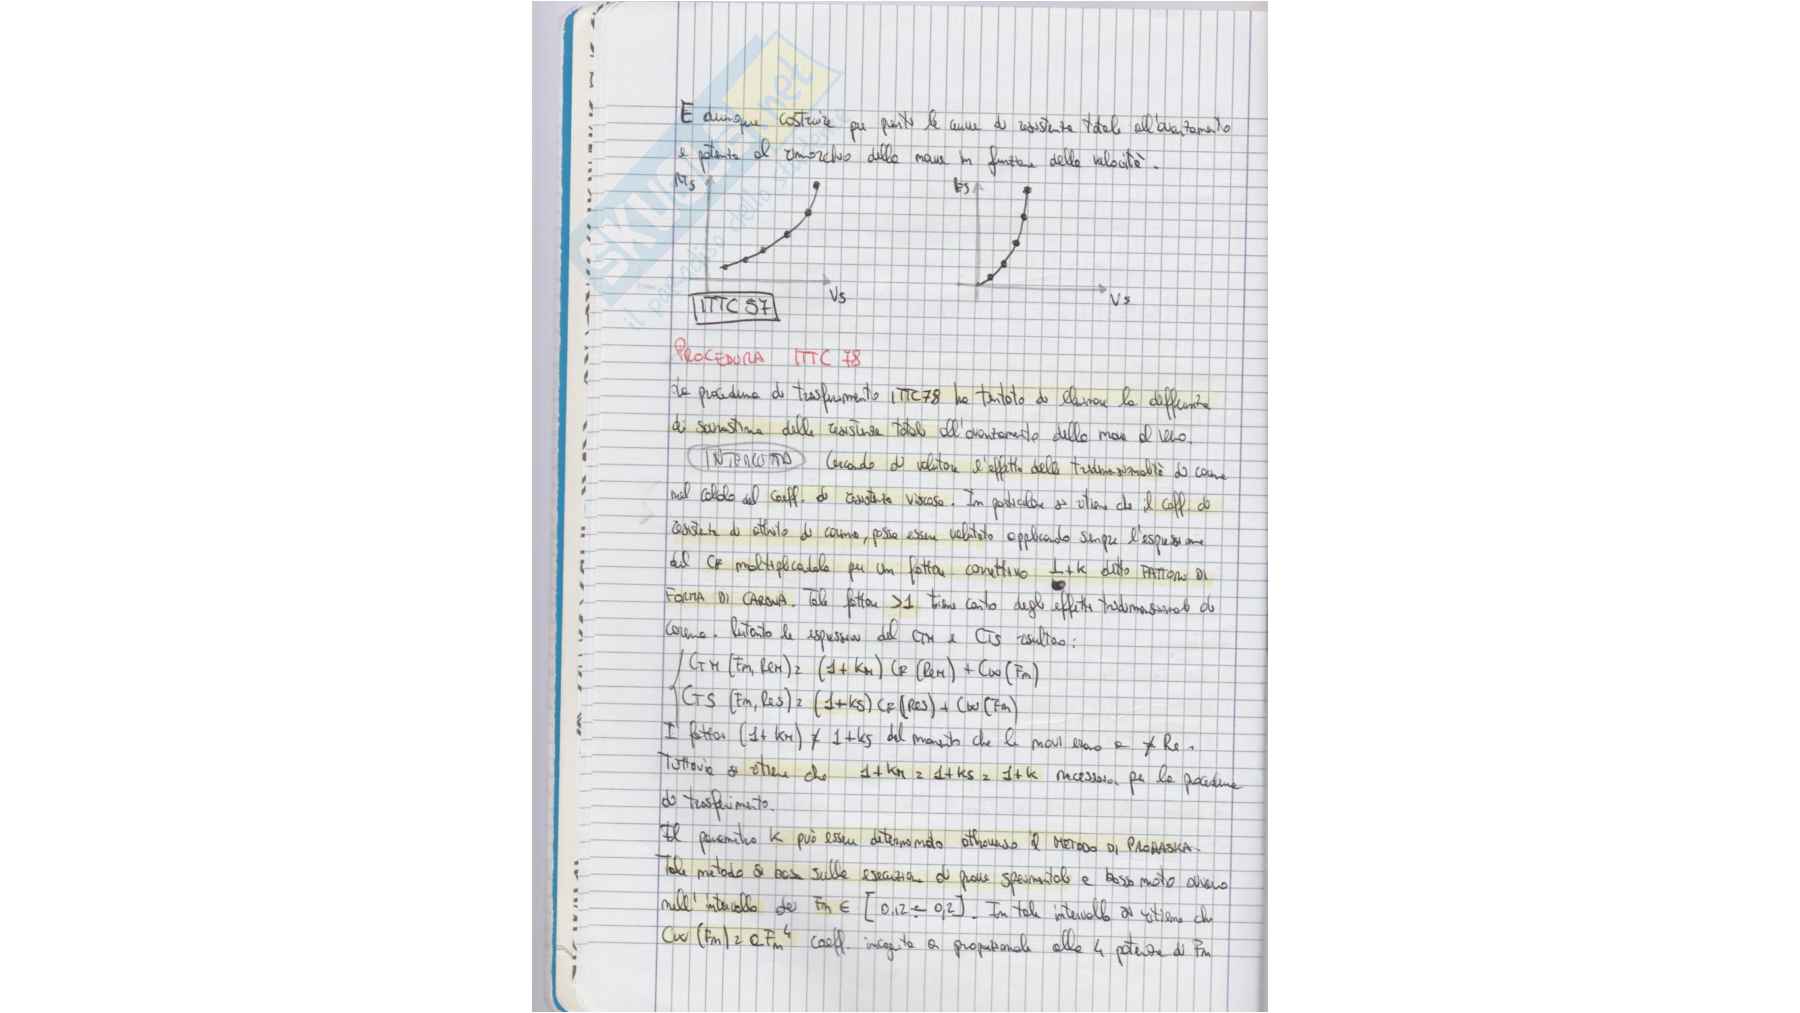 E dunque costruire per punti le curve di resistenza totale all'avanzamento
e potenza al rimorchio della nave in funzione della velocità.
Vs
Vs
ITTC 57
PROCEDURA ITTC 78
La procedura di trasferimento ITTC78 ha tentato di eliminare la differenza
di sovrastima della resistenza totale all'avanzamento della nave al vero.
Cercando di valutare l'effetto della tridimensionalità di carena
nel calcolo del coeff. di resistenza viscosa. In particolare si ritiene che il coeff. di
resistenza di attrito di carena, possa essere valutato applicando sempre l'espressione
del CF moltiplicandola per un fattore correttivo 1+k detto FATTORE DI
FORMA DI CARENA. Tale fattore >1 tiene conto degli effetti tridimensionali di
carena. Pertanto le espressioni del CTM e CTS risultano:
CTM (Fn, ReM) = (1+kM) CF (ReM) + Cw (Fn)
CTS (Fn, Res) = (1+ks) CF (Res) + Cw (Fn)
I fattori (1+kM) ≠ 1+ks dal momento che le navi sono a ≠ Re.
Tuttavia si ritiene che 1+kM = 1+ks = 1+k necessario per la procedura
di trasferimento.
Il parametro k può essere determinato attraverso il METODO DI PROHASKA.
Tale metodo si basa sulla esecuzione di prove sperimentali a basso moto ondoso
nell'intervallo di Fn ∈ [0,12 ÷ 0,2]. In tale intervallo si ritiene che
Cw (Fn) = a Fn⁴ coeff. incognito a proporzionale alla 4 potenza di Fn
SKUOLA.net
il paradiso dello studente